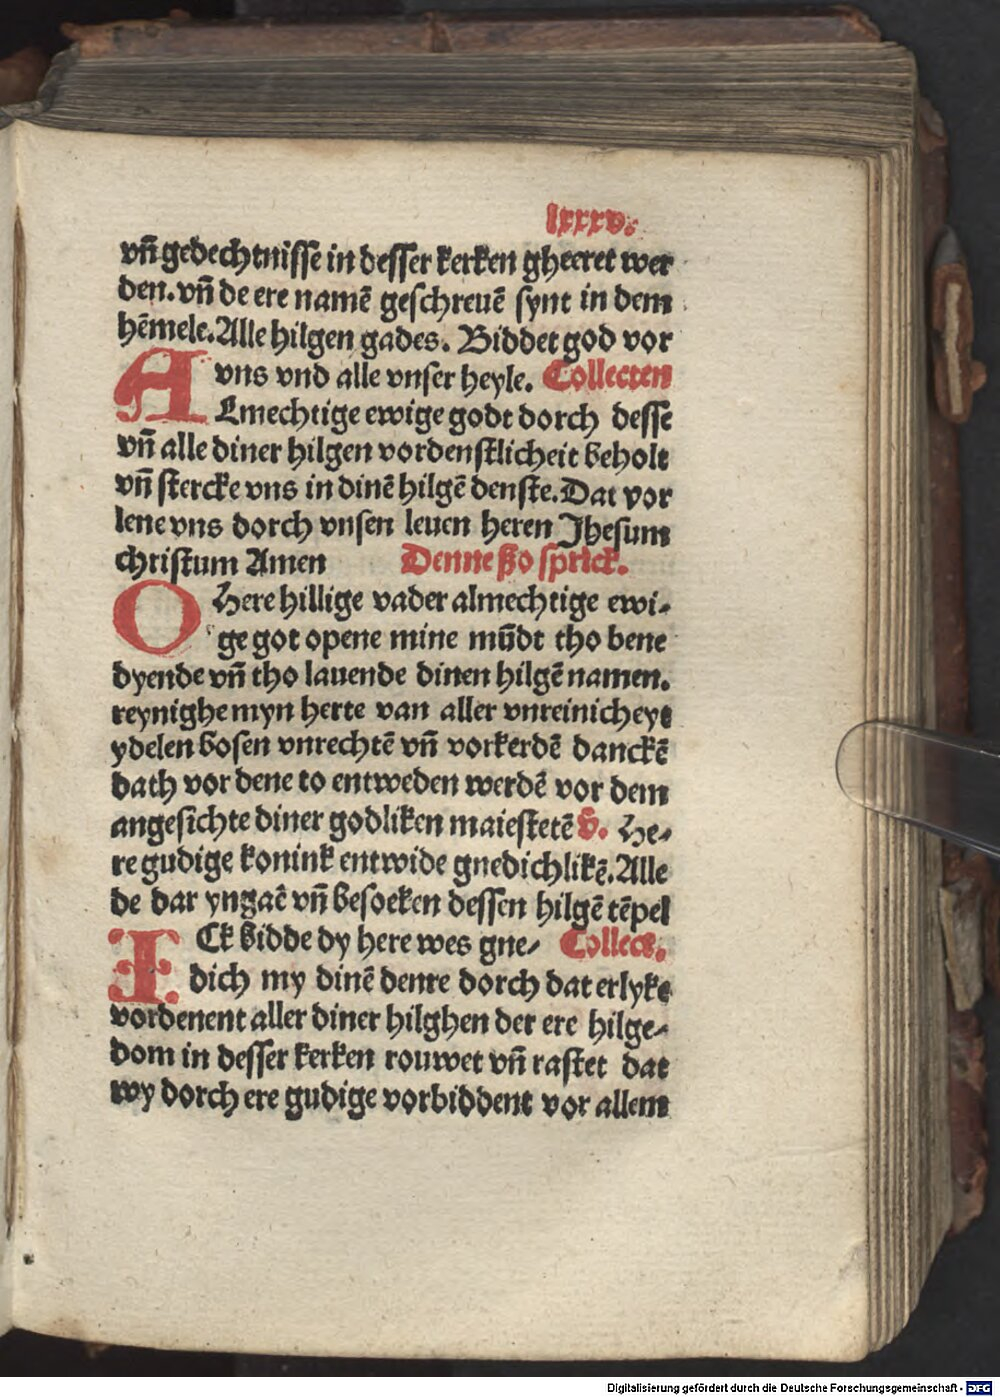 lxxxv.
vñ gedechtnisse in desser kerken gheeret wer
den. vñ de ere namē geschreuē synt in dem
hēmele. Alle hilgen gades. Biddet god vor
vns vnd alle vnser heyle. Collecten
ALmechtige ewige godt dorch desse
vñ alle diner hilgen vordenstlicheit beholt
vñ stercke vns in dinē hilgē denste. Dat vor
lene vns dorch vnsen leuen heren Jhesum
christum Amen Denne ßo sprick.
O Here hillige vader almechtige ewi-
ge got opene mine mūdt tho bene
dyende vñ tho lauende dinen hilgē namen.
reynighe myn herte van aller vnreinicheyt
ydelen bosen vnrechtē vñ vorkerdē danckē
dath vor dene to entweden werdē vor dem
angesichte diner godliken maiestetē v̄. He-
re gudige konink entwide gnedichlikē. Alle
de dar yngaē vñ besoeken dessen hilgē tēpel
ICk bidde dy here wes gne- Collect.
dich my dinē denre dorch dat erlyke
vordenent aller diner hilghen der ere hilge-
dom in desser kerken rouwet vñ rastet dat
wy dorch ere gudige vorbiddent vor allem
Digitalisierung gefördert durch die Deutsche Forschungsgemeinschaft - DFG